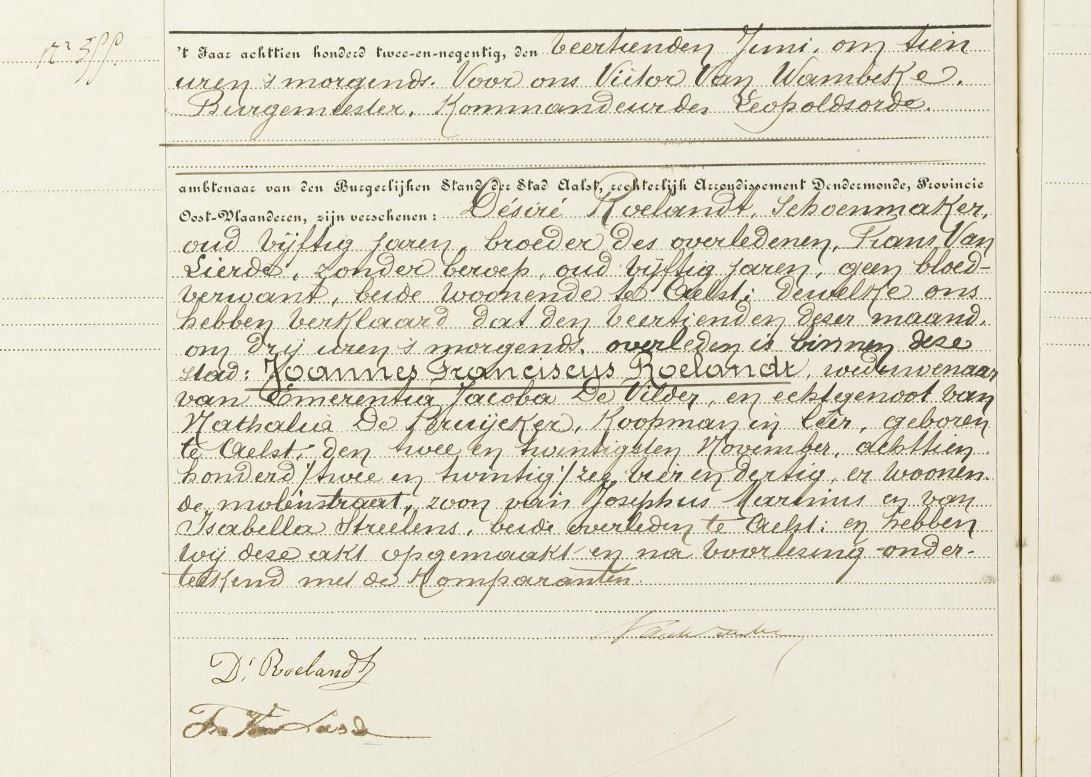 't Jaar achttien honderd twee-en-negentig, den veertienden Juni, om tien
uren 's morgends. Voor ons Victor Van Wambeke.
Burgemeester, Kommandeur der Leopoldsorde.
ambtenaar van den Burgerlijken Stand der Stad Aalst, rechterlijk Arrondissement Dendermonde, Provincie
Oost-Vlaanderen, zijn verschenen: Désiré Roelandt, Schoenmaker,
oud vijftig jaren, broeder des overledenen, Frans Van
Lierde, zonder beroep, oud vijftig jaren, geen bloed-
verwant, beide woonende te Aelst; dewelke ons
hebben verklaard dat den veertienden dezer maand,
om drij uren 's morgends, overleden is binnen deze
stad: Joannes Franciscus Roelandt, weduwenaar
van Emerentia Jacoba De Vilder, en echtgenoot van
Nathalia De Bruijcker, Koopman in leêr, geboren
te Aelst, den twee en twintigsten November, achttien
honderd /twee en twintig/ vier en dertig, er woonen-
de molenstraat, zoon van Josephus Martinus en van
Isabella Streelens, beide overleden te Aelst; en hebben
wij deze akt opgemaakt en na voorlezing onder-
teekend met de Komparanten
D. Roelandt
Fr Van Lierde